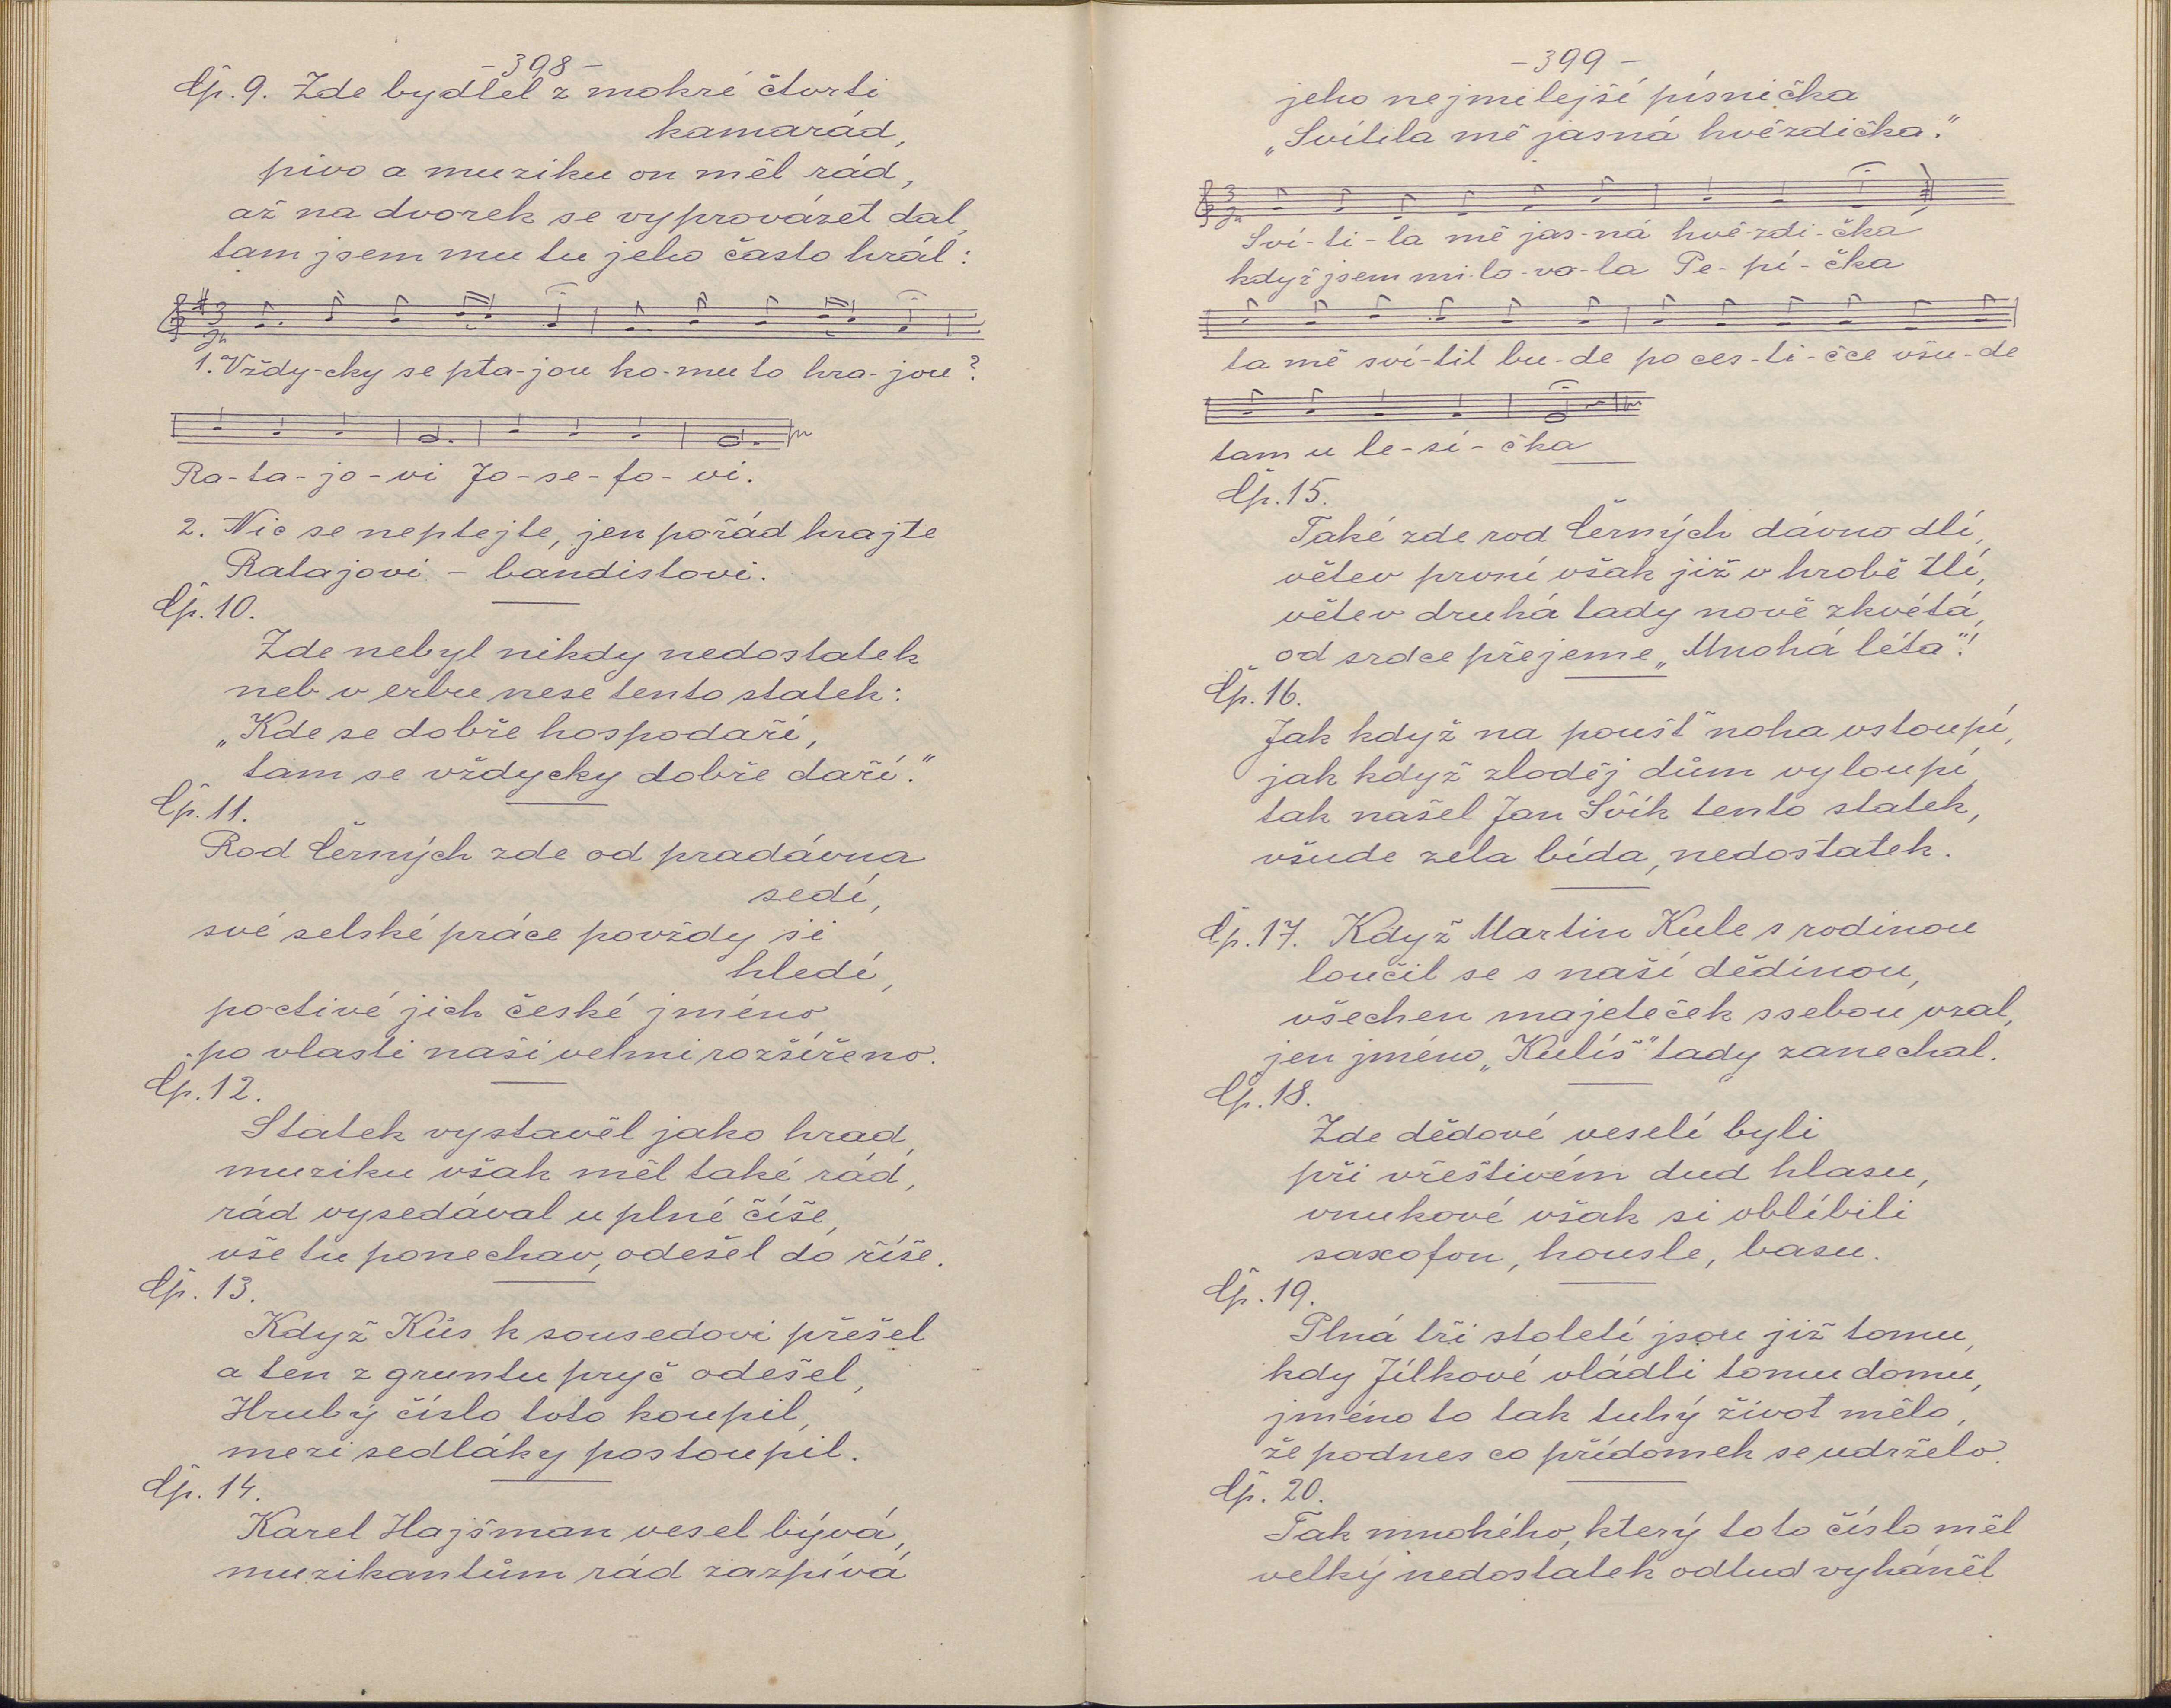 -398-
Čp. 9. Zde bydlel z mokré čtvrti
kamarád,
pivo a muziku on měl rád,
až na dvorek se vyprovázet dal,
tam jsem mu tu jeho často hrál:
1. Vždy-cky se pta-jou ko-mu to hra-jou?
Ra-ta-jo-vi Jo-se-fo-vi.
2. Nic se neptejte, jen pořád hrajte
Ratajovi - bandistovi.
Čp. 10.
Zde nebyl nikdy nedostatek
neb v erbu nese tento statek:
„Kde se dobře hospodaří,
tam se vždycky dobře daří."
Čp. 11.
Rod Černých zde od pradávna
sedí,
své selské práce povždy si
hledí,
poctivé jich české jméno
po vlasti naší velmi rozšířeno.
Čp. 12.
Statek vystavěl jako hrad,
muziku však měl také rád,
rád vysedával u plné číše,
vše tu ponechav, odešel do říše.
Čp. 13.
Když Kůs k sousedovi přešel
a ten z gruntu pryč odešel,
Hrubý číslo toto koupil,
mezi sedláky postoupil.
Čp. 14.
Karel Hajšman vesel bývá,
muzikantům rád zazpívá
-399-
jeho nejmilejší písnička
„Svítila mě jasná hvězdička."
Sví-ti-la mě jas-ná hvě-zdi-čka
když jsem mi-lo-va-la Pe-pí-čka
ta mě sví-tit bu-de po ces-ti-čce všu-de
tam u le-sí-čka
Čp. 15.
Také zde rod Černých dávno dlí,
větev první však již v hrobě tlí,
větev druhá tady nově zkvétá,
od srdce přejeme „Mnohá léta"!
Čp. 16.
Jak když na poušť noha vstoupí,
jak když zloděj dům vyloupí,
tak našel Jan Svík tento statek,
všude zela bída, nedostatek.
Čp. 17. Když Martin Kule s rodinou
loučil se s naší dědinou,
všechen majeteček ssebou vzal,
jen jméno „Kulíš" tady zanechal.
Čp. 18.
Zde dědové veselí byli
při vřeštivém dud hlasu,
vnukové však si oblíbili
saxofon, housle, basu.
Čp. 19.
Plná tři století jsou již tomu,
kdy Jílkové vládli tomu domu,
jméno to tak tuhý život mělo,
že podnes co přídomek se udrželo.
Čp. 20.
Tak mnohého, který toto číslo měl
velký nedostatek odtud vyháněl